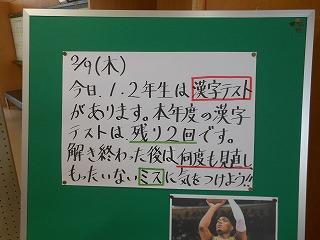 2/9(木)
今日、1.2年生は漢字テスト
があります。本年度の漢字
テストは残り2回です。
解き終わった後は何度も見直し
もったいないミスに気をつけよう!!